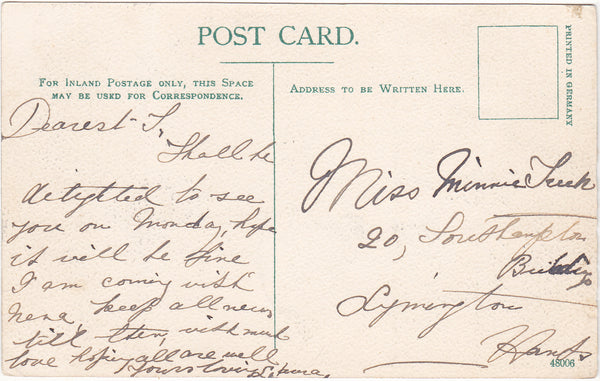 POST CARD.
FOR INLAND POSTAGE ONLY, THIS SPACE
MAY BE USED FOR CORRESPONDENCE.
ADDRESS TO BE WRITTEN HERE.
PRINTED IN GERMANY
Dearest
Shall be
delighted to see
you on Monday, hope
it will be fine
I am coming with
keep all news
till then, with much
love hoping all are well
Yours loving
Miss Minnie
20, Southampton
Buildings
Lymington
Hants
48006